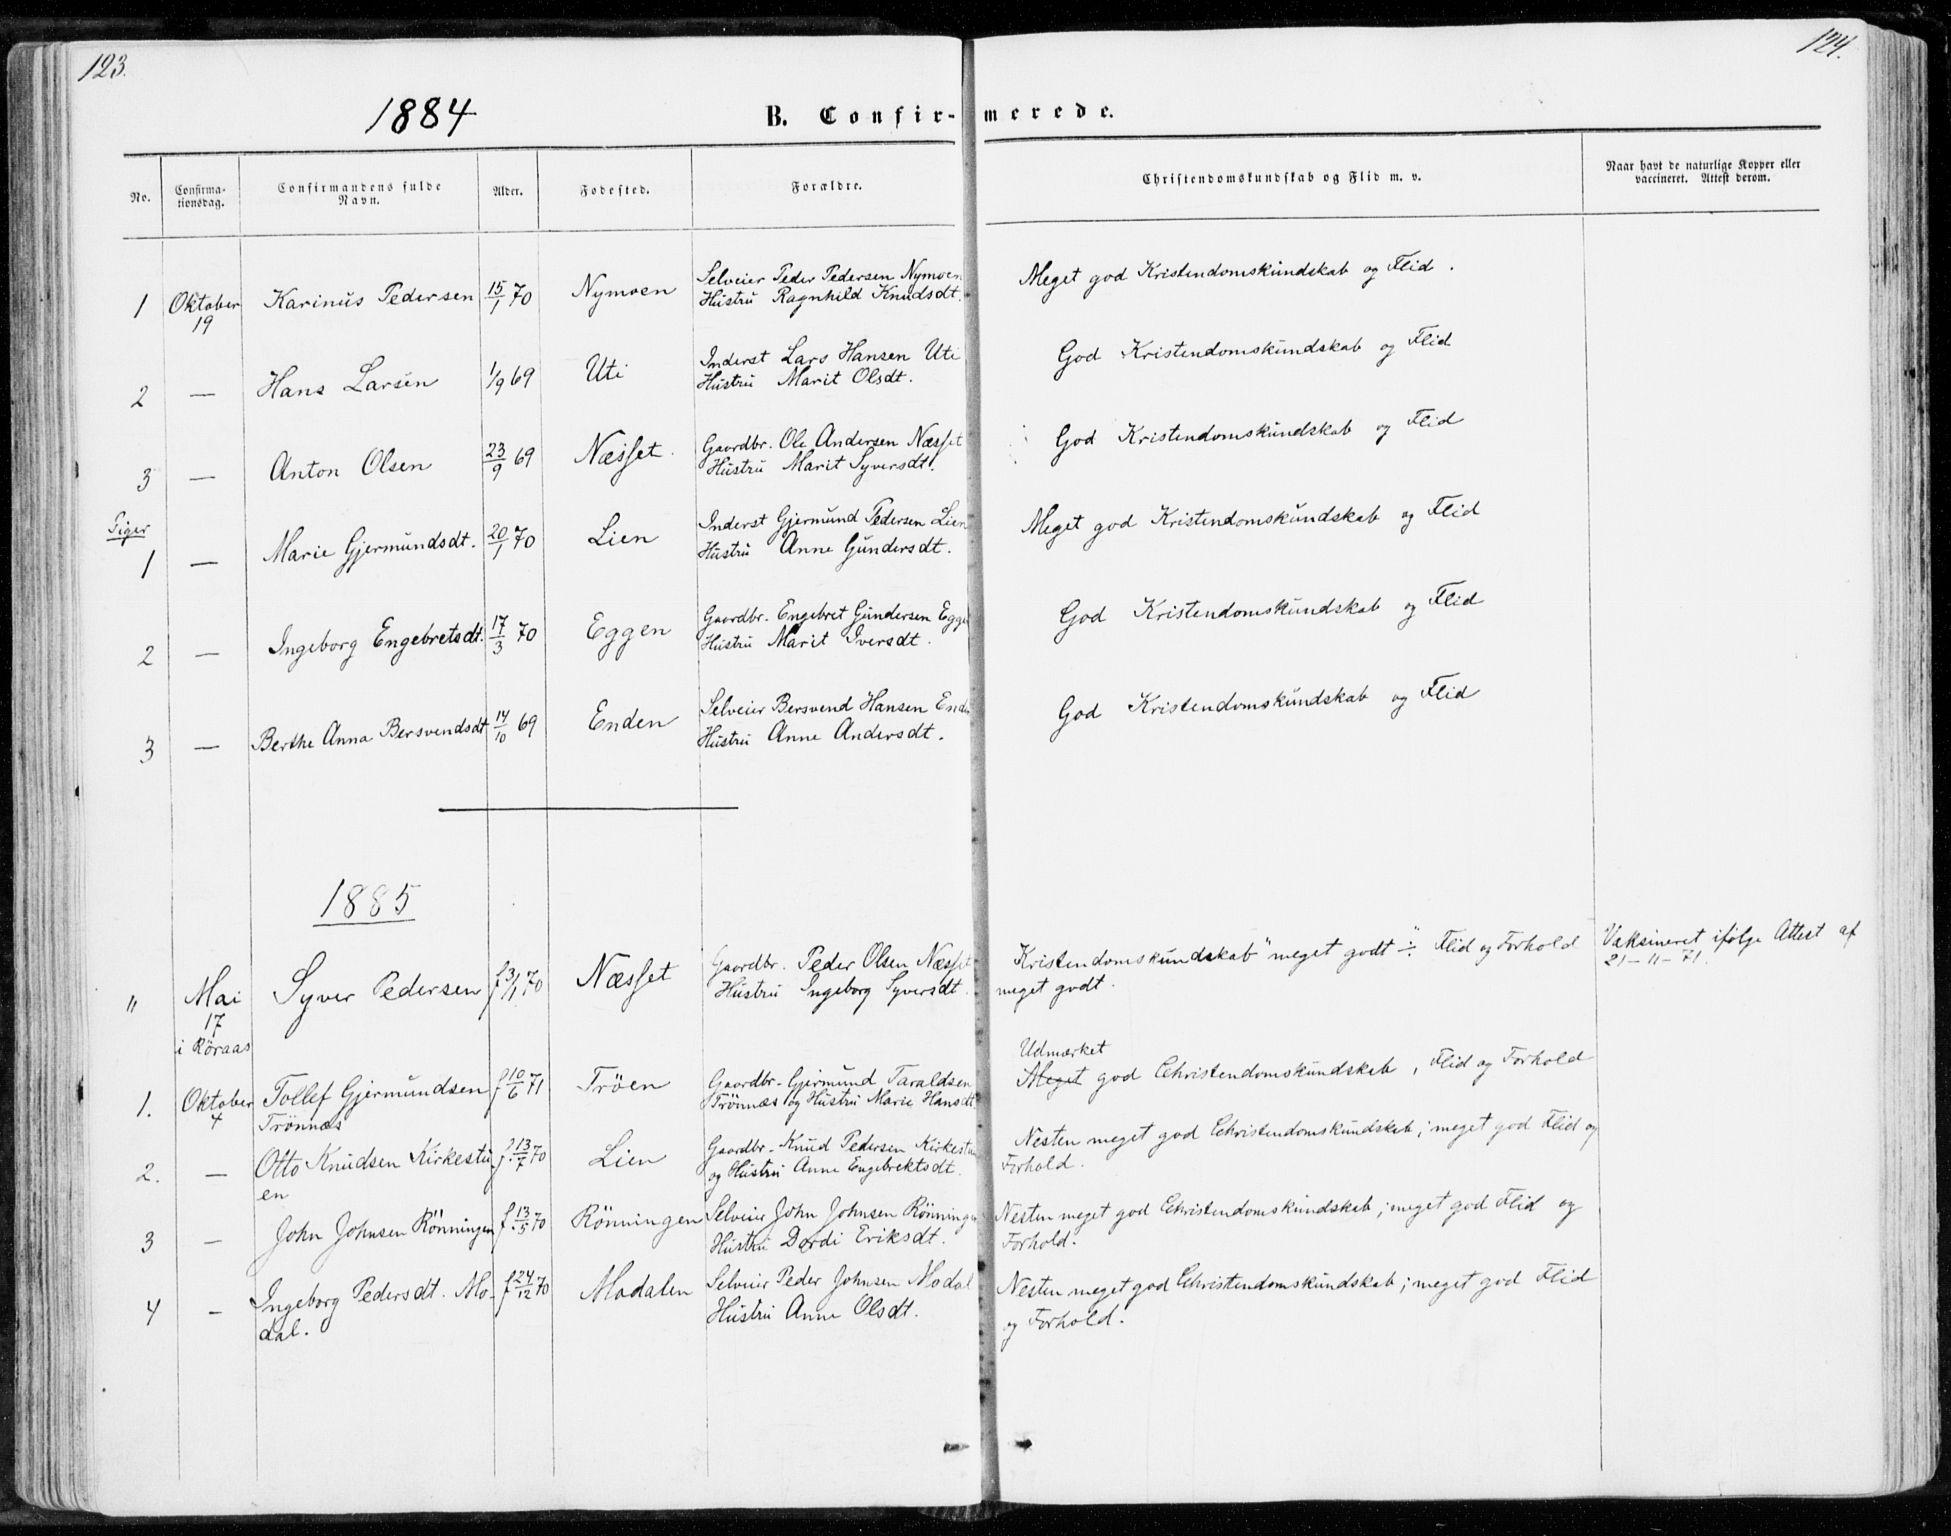 123.
124.
1884
B. Confirmerede.
No.
Confirma-
tionsdag.
Confirmandens fulde
Navn.
Alder.
Fødested.
Forældre.
Christendomskundskab og Flid m. v.
Naar havt de naturlige Kopper eller
vaccineret. Attest derom.
1 Oktober 19 Karinus Pedersen 15/1 70 Nymoen
Selveier Peder Pedersen Nymoen
Hustru Ragnhild Knudsdt.
Meget god Kristendomskundskab og Flid.
2 — Hans Larsen 1/9 69 Uti
Inderst Lars Hansen Uti
Hustru Marit Olsdt.
God Kristendomskundskab og Flid
3 — Anton Olsen 23/9 69 Næsset
Gaardbr. Ole Andersen Næsset
Hustru Marit Syversdt.
God Kristendomskundskab og Flid
Piger
1 — Marie Gjermundsdt. 20/1 70 Lien
Inderst Gjermund Pedersen Lien
Hustru Anne Gundersdt.
Meget god Kristendomskundskab og Flid
2 — Ingeborg Engebretsdt. 17/3 70 Eggen
Gaardbr. Engebret Gundersen Egge
Hustru Marit Iversdt.
God Kristendomskundskab og Flid
3 — Berthe Anna Bersvendsdt 14/10 69 Enden
Selveier Bersvend Hansen Ende
Hustru Anne Andersdt.
God Kristendomskundskab og Flid
1885
" Mai 17 i Röraas Syver Pedersen f 3/1 70 Næsset
Gaardbr. Peder Olsen Næsset
Hustru Ingeborg Syversdt.
Kristendomskundskab "meget godt ÷" Flid og Forhold
meget godt.
Vaksineret ifölge Attest af
21-11-71.
1. Oktober 4 Tollef Gjermundsen
Trönnæs
f 10/6 71 Tröen
Gaardbr. Gjermund Taraldsen
Trönnæs og Hustru Marie Hansdt.
Udmærket
Meget god Christendomskundskab, Flid og Forhold
2. — Otto Knudsen Kirkestu
en
f. 13/7 70 Lien
Gaardbr. Knud Pedersen Kirkestuen
og Hustru Anne Engebrektsdt.
Nesten meget god Christendomskundskab; meget god Flid og
Forhold.
3 — John Johnsen Rönningen f. 13/5 70 Rönningen
Selveier John Johnsen Rönningen
Hustru Dordi Eriksdt.
Nesten meget god Christendomskundskab; meget god Flid og
Forhold.
4 — Ingeborg Pedersdt. Mo-
dal.
f 24/12 70 Modalen
Selveier Peder Johnsen Modal
Hustru Anne Olsdt.
Nesten meget god Christendomskundskab; meget god Flid
og Forhold.